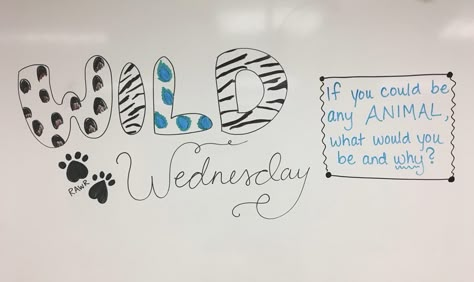 WILD
Wednesday
RAWR
If you could be
any ANIMAL,
what would you
be and why?